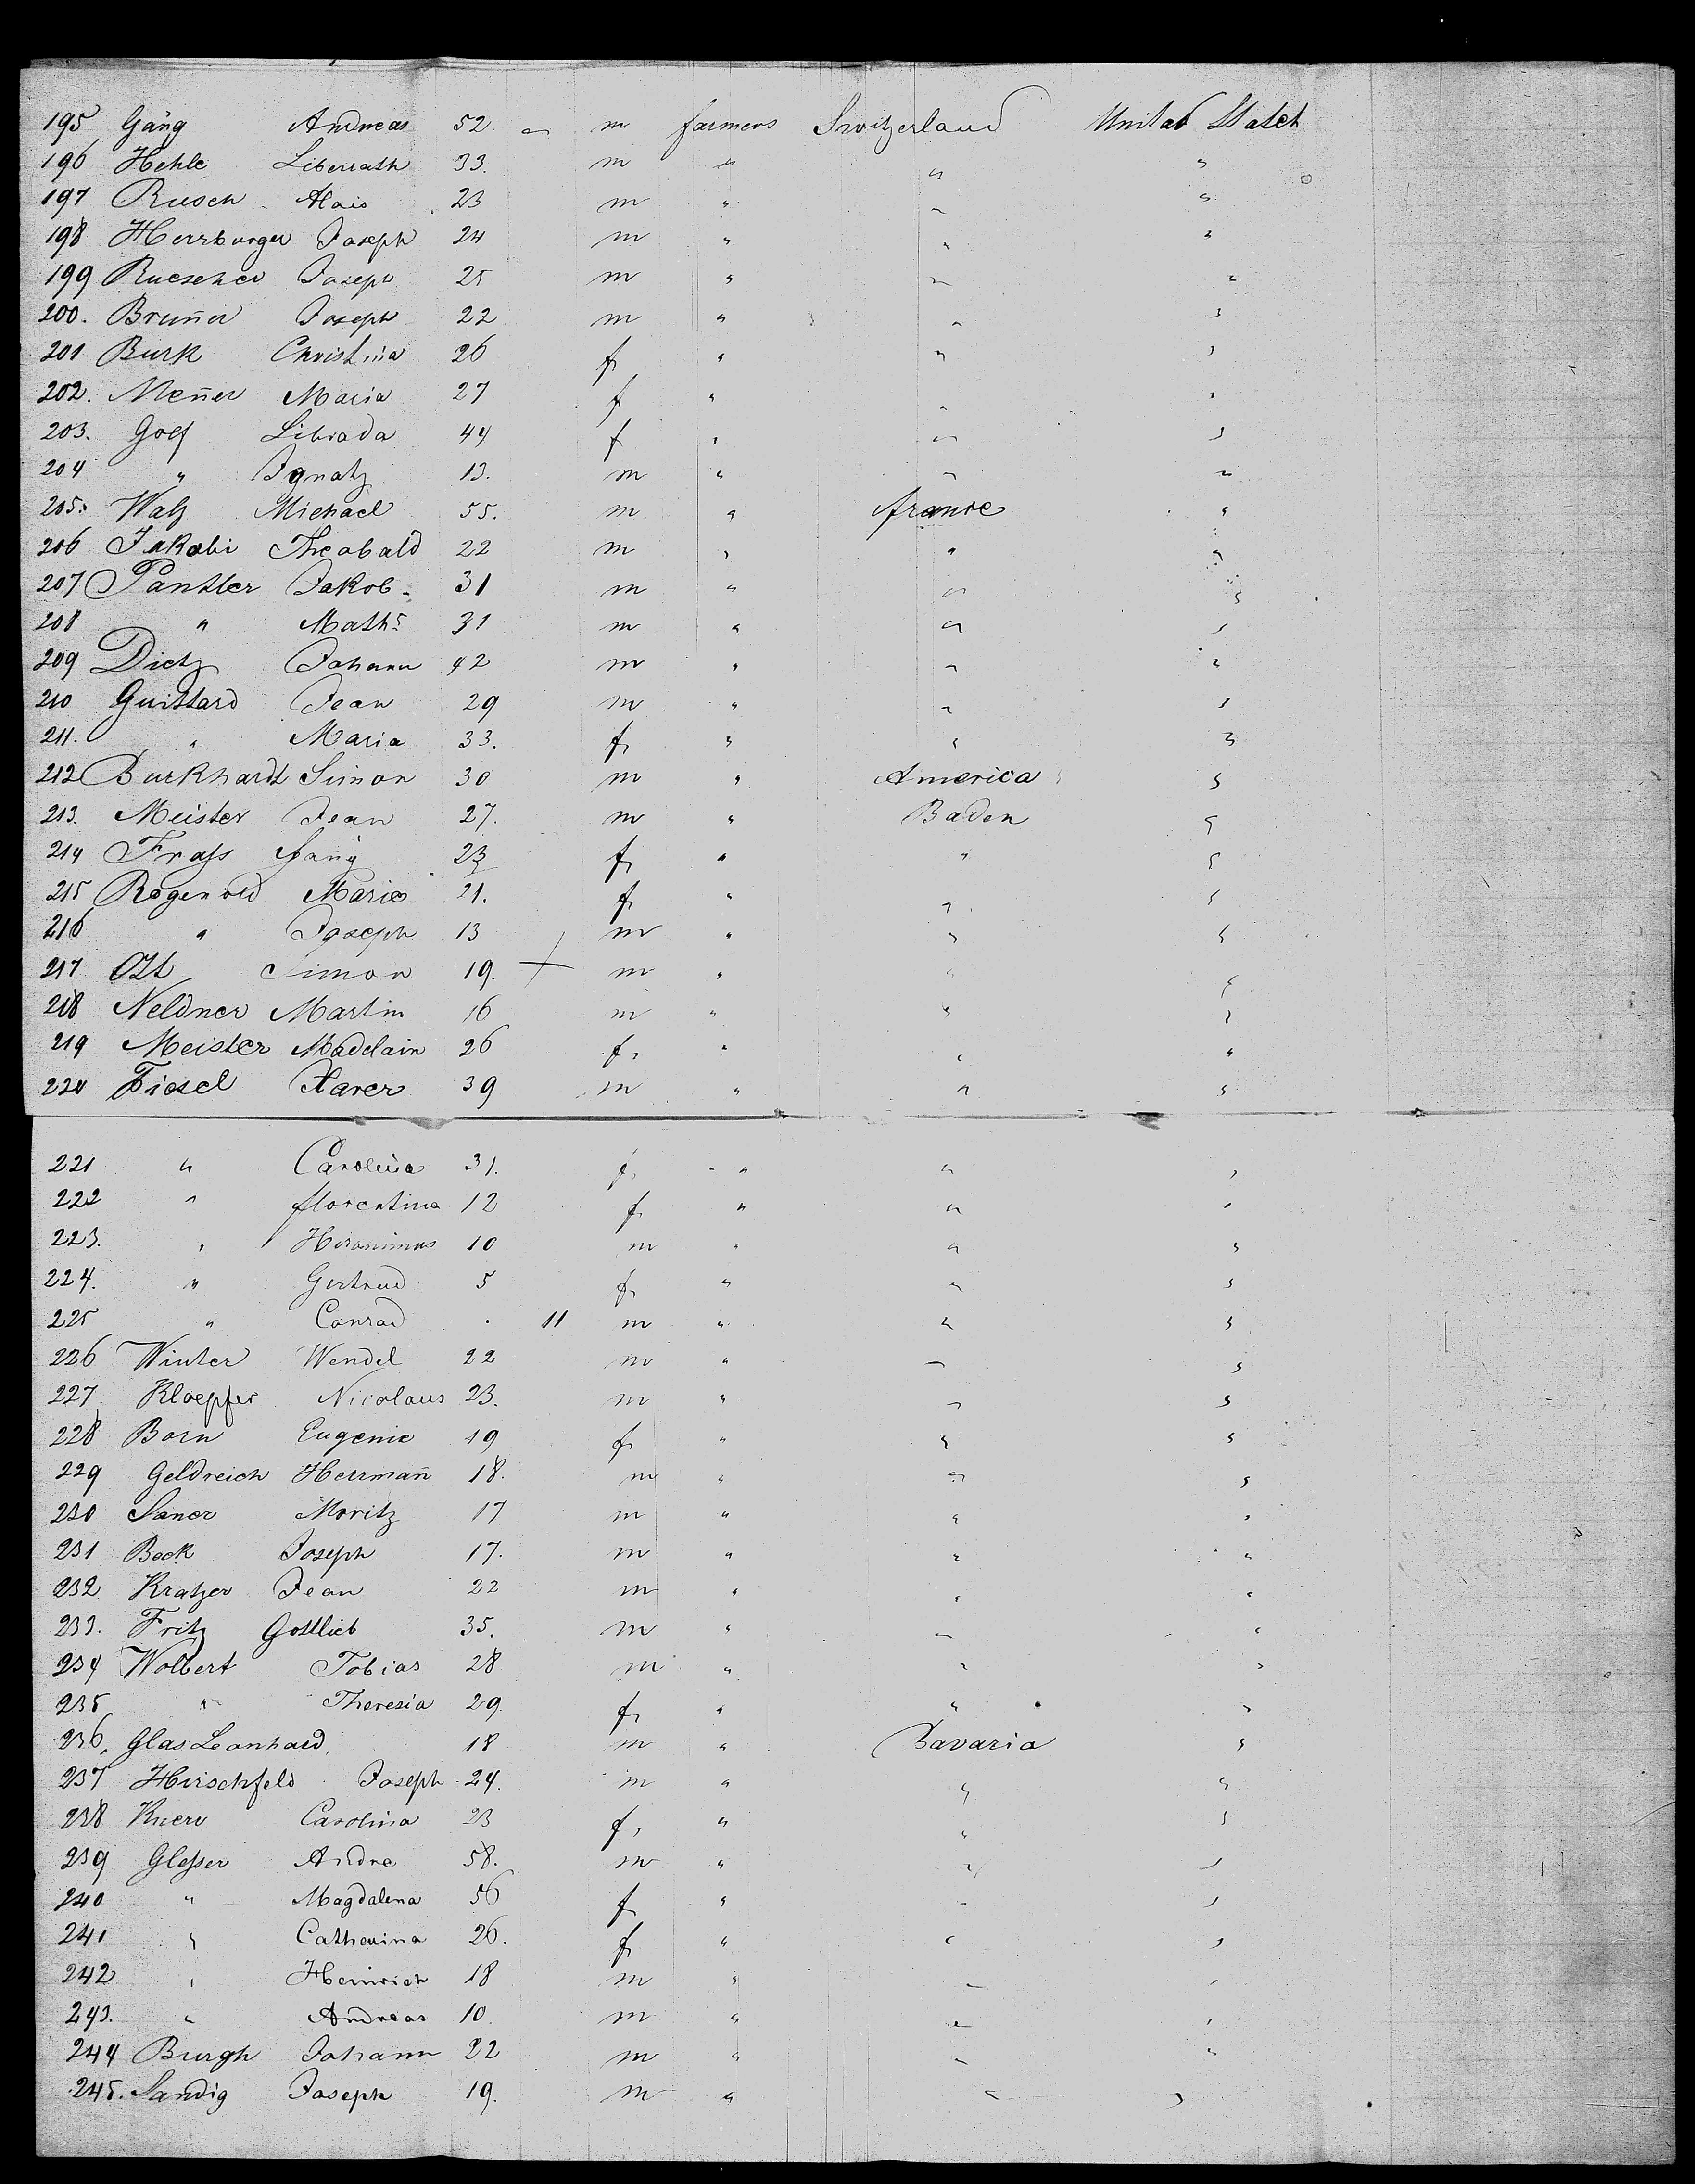 195 Gäng Andreas 52 " m farmers Switzerland United States
196 Hehle Liberath 33. m " " "
197 Rusch Alois 23 m " " "
198 Herrburger Joseph 24 m " " "
199 Ruescher Joseph 25 m " " "
200. Bruñer Joseph 22 m " " "
201 Burk Christina 26 f " " "
202. Meñer Maria 27 f " " "
203. Golf Librada 44 f " " "
204 " Ignatz 13. m " " "
205. Walz Michael 55. m " france "
206 Jakobi Theobald 22 m " " "
207 Pantler Jakob 31 m " " "
208 " Maths 31 m " " "
209 Dietz Johann 42 m " " "
210 Guittard Jean 29 m " " "
211. " Maria 33. f " " "
212 Burkhardt Simon 30 m " America "
213. Meister Jean 27. m " Baden "
214 Frass fañy 23 f " " "
215 Regenold Marie 21. f " " "
216 " Joseph 13 m " " "
217 Ott Simon 19. + m " " "
218 Neldner Martin 16 m " " "
219 Meister Madelain 26 f " " "
220 Fiesel Xaver 39 m " " "
221 " Carolina 31. f " " "
222 " florentina 12 f " " "
223. " Heronimus 10 m " " "
224. " Gertrud 5 f " " "
225 " Conrad . 11 m " " "
226 Winter Wendel 22 m " " "
227 Kloepfer Nicolaus 23. m " " "
228 Born Eugenie 19 f " " "
229 Geldreich Herrmañ 18. m " " "
230 Saner Moritz 17 m " " "
231 Bock Joseph 17. m " " "
232 Kratzer Jean 22 m " " "
233. Fritz Gottlieb 35. m " " "
234 Wolbert Tobias 28 m " " "
235 " Theresia 29. f " " "
236. Glas Leonhard, 18 m " Bavaria "
237 Hirschfeld Joseph 24. m " " "
238 Knerv Carolina 23 f " " "
239 Glesser Andre 58. m " " "
240 " Magdalena 56 f " " "
241 " Catherina 26. f " " "
242 " Heinrich 18 m " " "
243. " Andreas 10. m " " "
244 Burgh Johann 22 m " " "
245. Sandig Joseph 19. m " " "